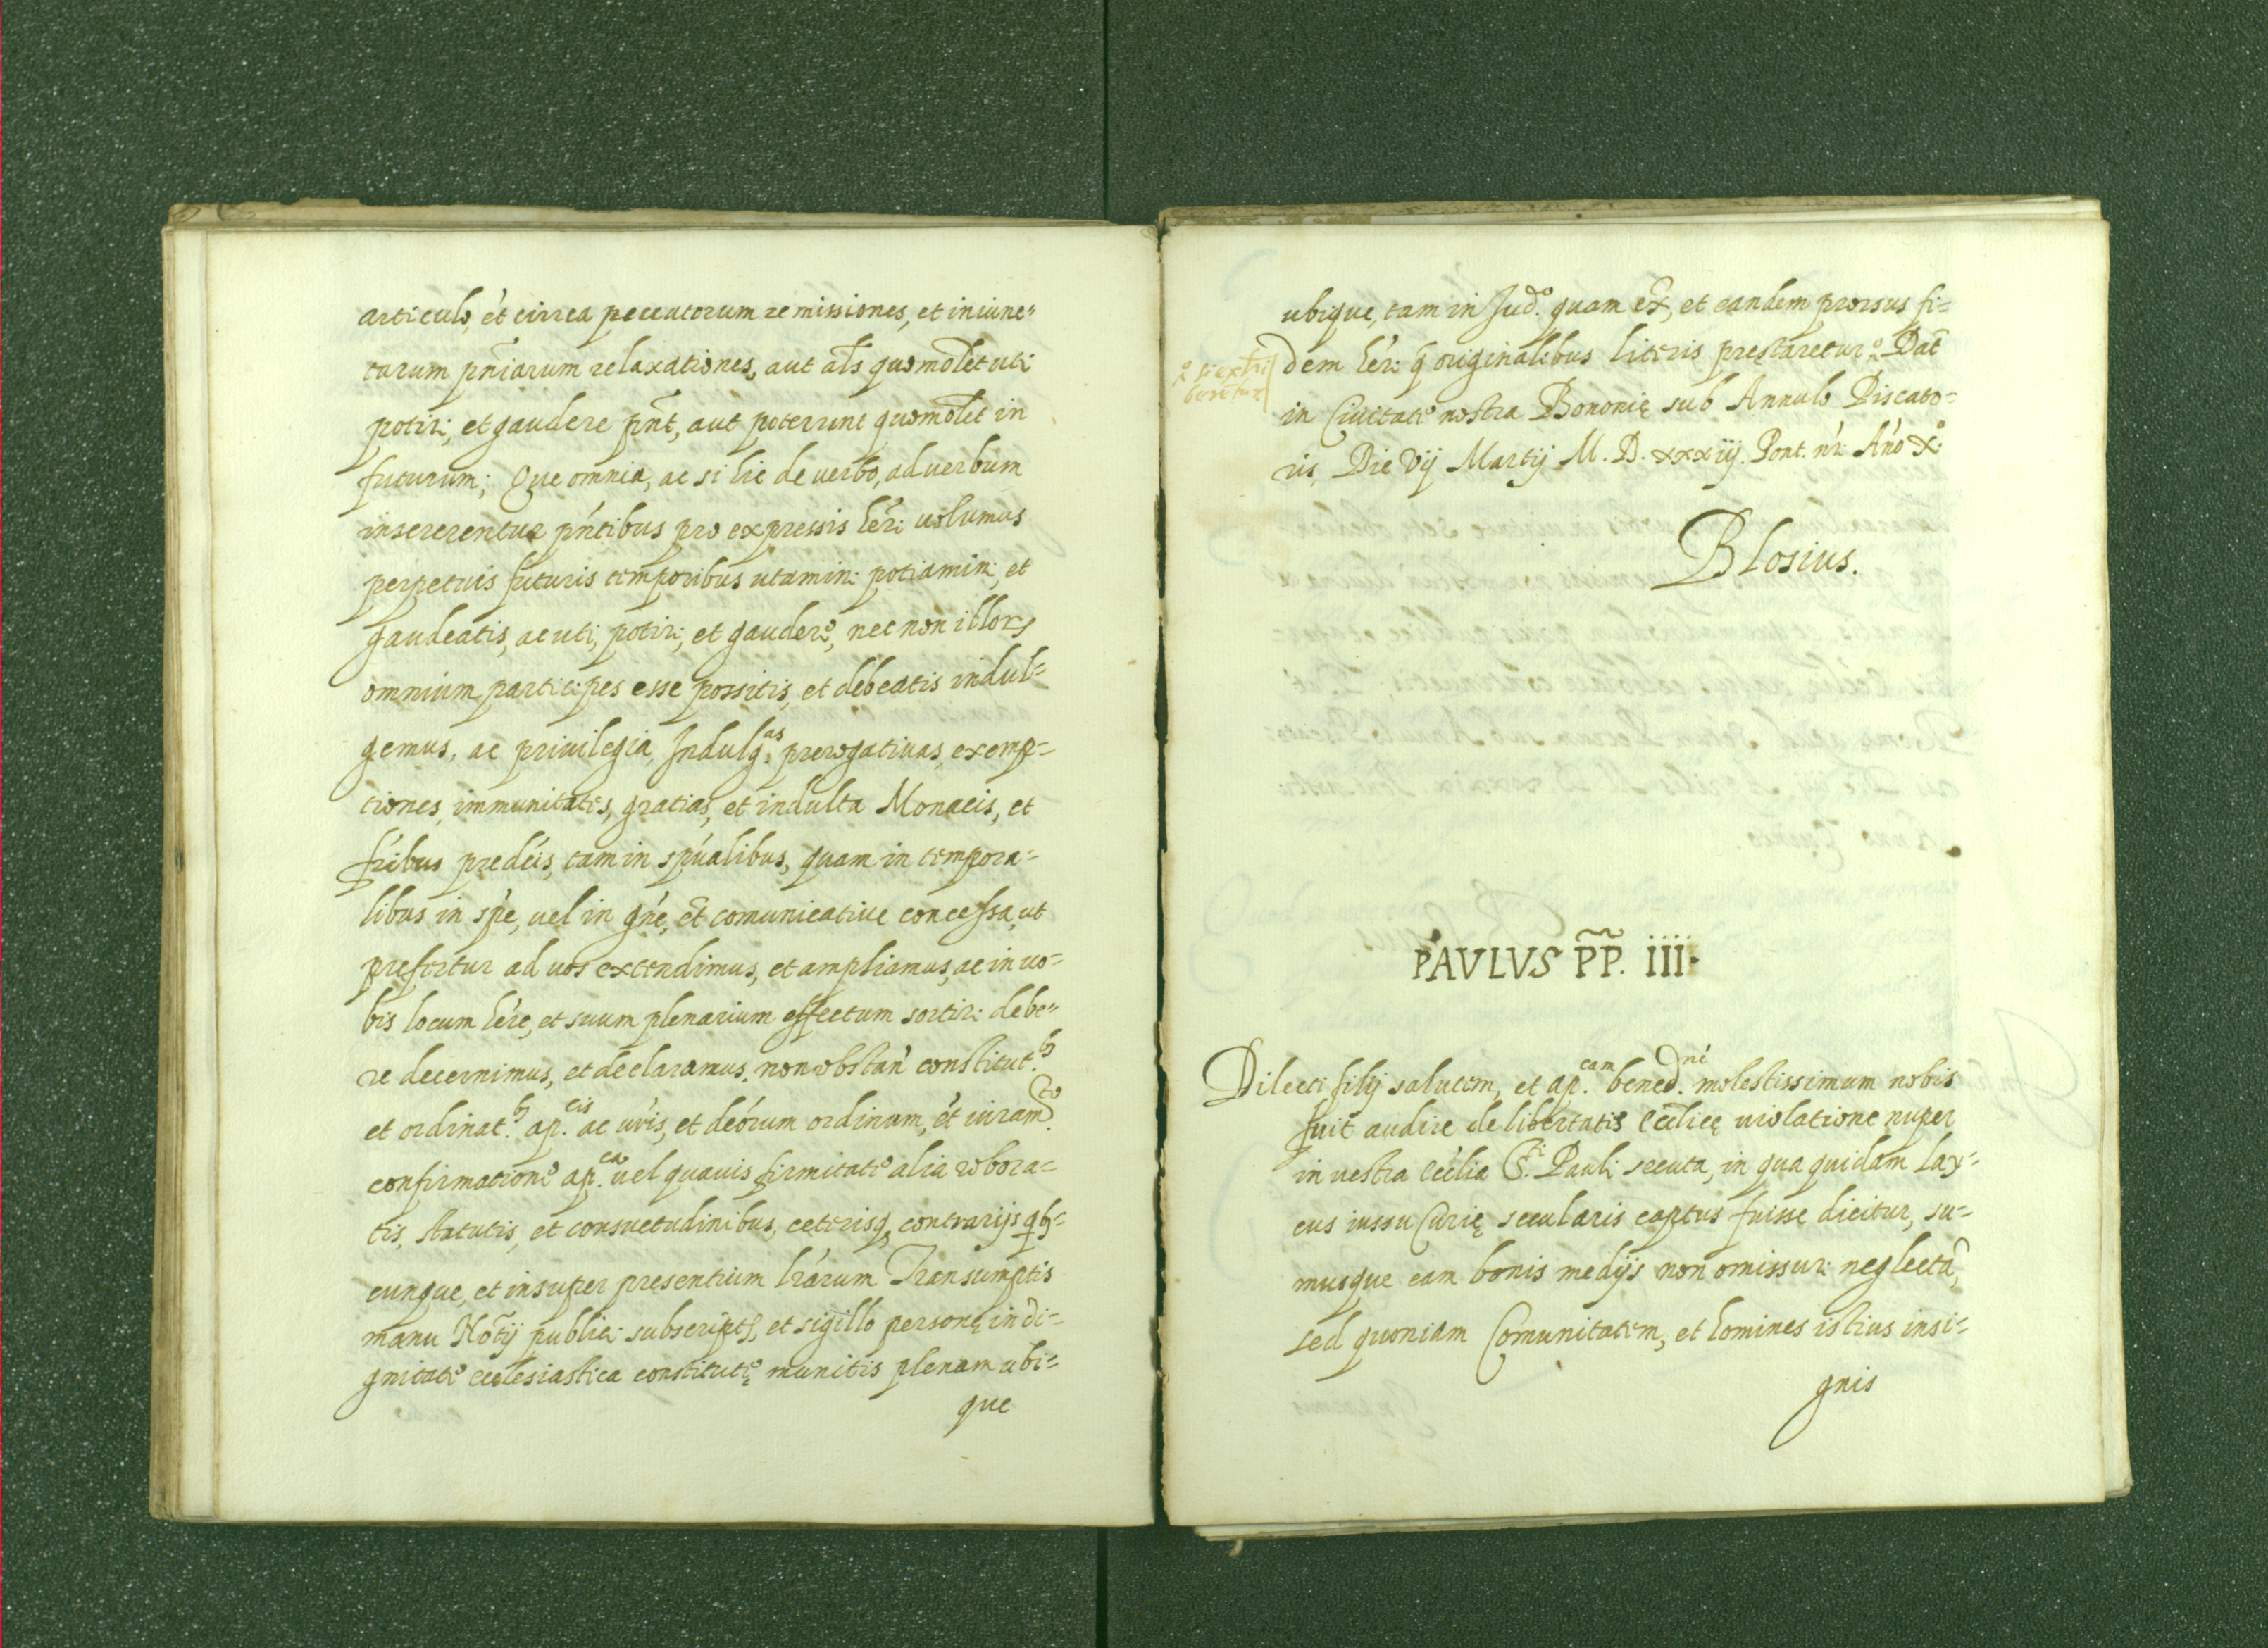 articulo, et́ circa peccatorum remissiones, et iniunc=
tarum pñiarum relaxationes, aut al̃s quomol̃et uti
potiri, et gaudere pñt, aut poterunt quomol̃et in
futurum; Que omnia, ac si hic de uerbo, ad uerbum
insererentur pńtibus pro expressis hér̃i uolumus
perpetuis futuris temporibus utamini potiamini, et
gaudeatis, ac uti, potiri, et gaudere, nec non illorꝝ
omnium participes esse possitis, et debeatis indul=
gemus, ac priuilegia, Indulg.as prerogatiuas, exemp=
tiones, immunitates, gratias, et indulta Monacis, et
fŕibus predćis, tam in spúalibus, quam in tempora=
libus in spé, uel in gńe, et̃ comunicatiue concessa, ut
prefertur ad uos extendimus, et ampliamus, ac in uo=
bis locum hére, et suum plenarium effectum sortiri debe=
re decernimus, et declaramus. non obstañ constitut.bꝫ
et ordinat.bꝫ ap.cis ac úris, et deórum ordinum, et́ iuram.to
confirmatione ap.ca uel quauis firmitate alia robora=
tis, statutis, et consuetudinibus, ceterisqꝫ contrarijs qbꝫ=
cunque, et insuper presentium lŕarum Transumptis
manu Not̃ij publici subscriptꝭ, et sigillo personę in di=
gnitate ecclesiastica constitutę munitis plenam ubi=
que
ubique, tam in Jud.o quam ex̃, et eandem prorsus fi=
dem hér̃i q̃ originalibus literis prestaretur. Dat̃
in Ciuitate nostra Bononię sub Annulo Piscato=
ris, Die Vij Martij M.D.xxxiij. Pont. nŕi Ańo X.o
Blosius.
PAVLVS P̃P̃. IIII.
Dilecti filij salutem, et ap.cam bened.né molestissimum nobis
fuit audire de libertatis eccl̃icę uiolatione nuper
in uestra eccĺia S.ti Pauli secuta, in qua quidam lay=
cus iussu Curię secularis captus fuisse dicitur, su=
musque eam bonis medijs non omissuri neglectã,
sed quoniam Comunitatem, et homines istius insi=
gnis